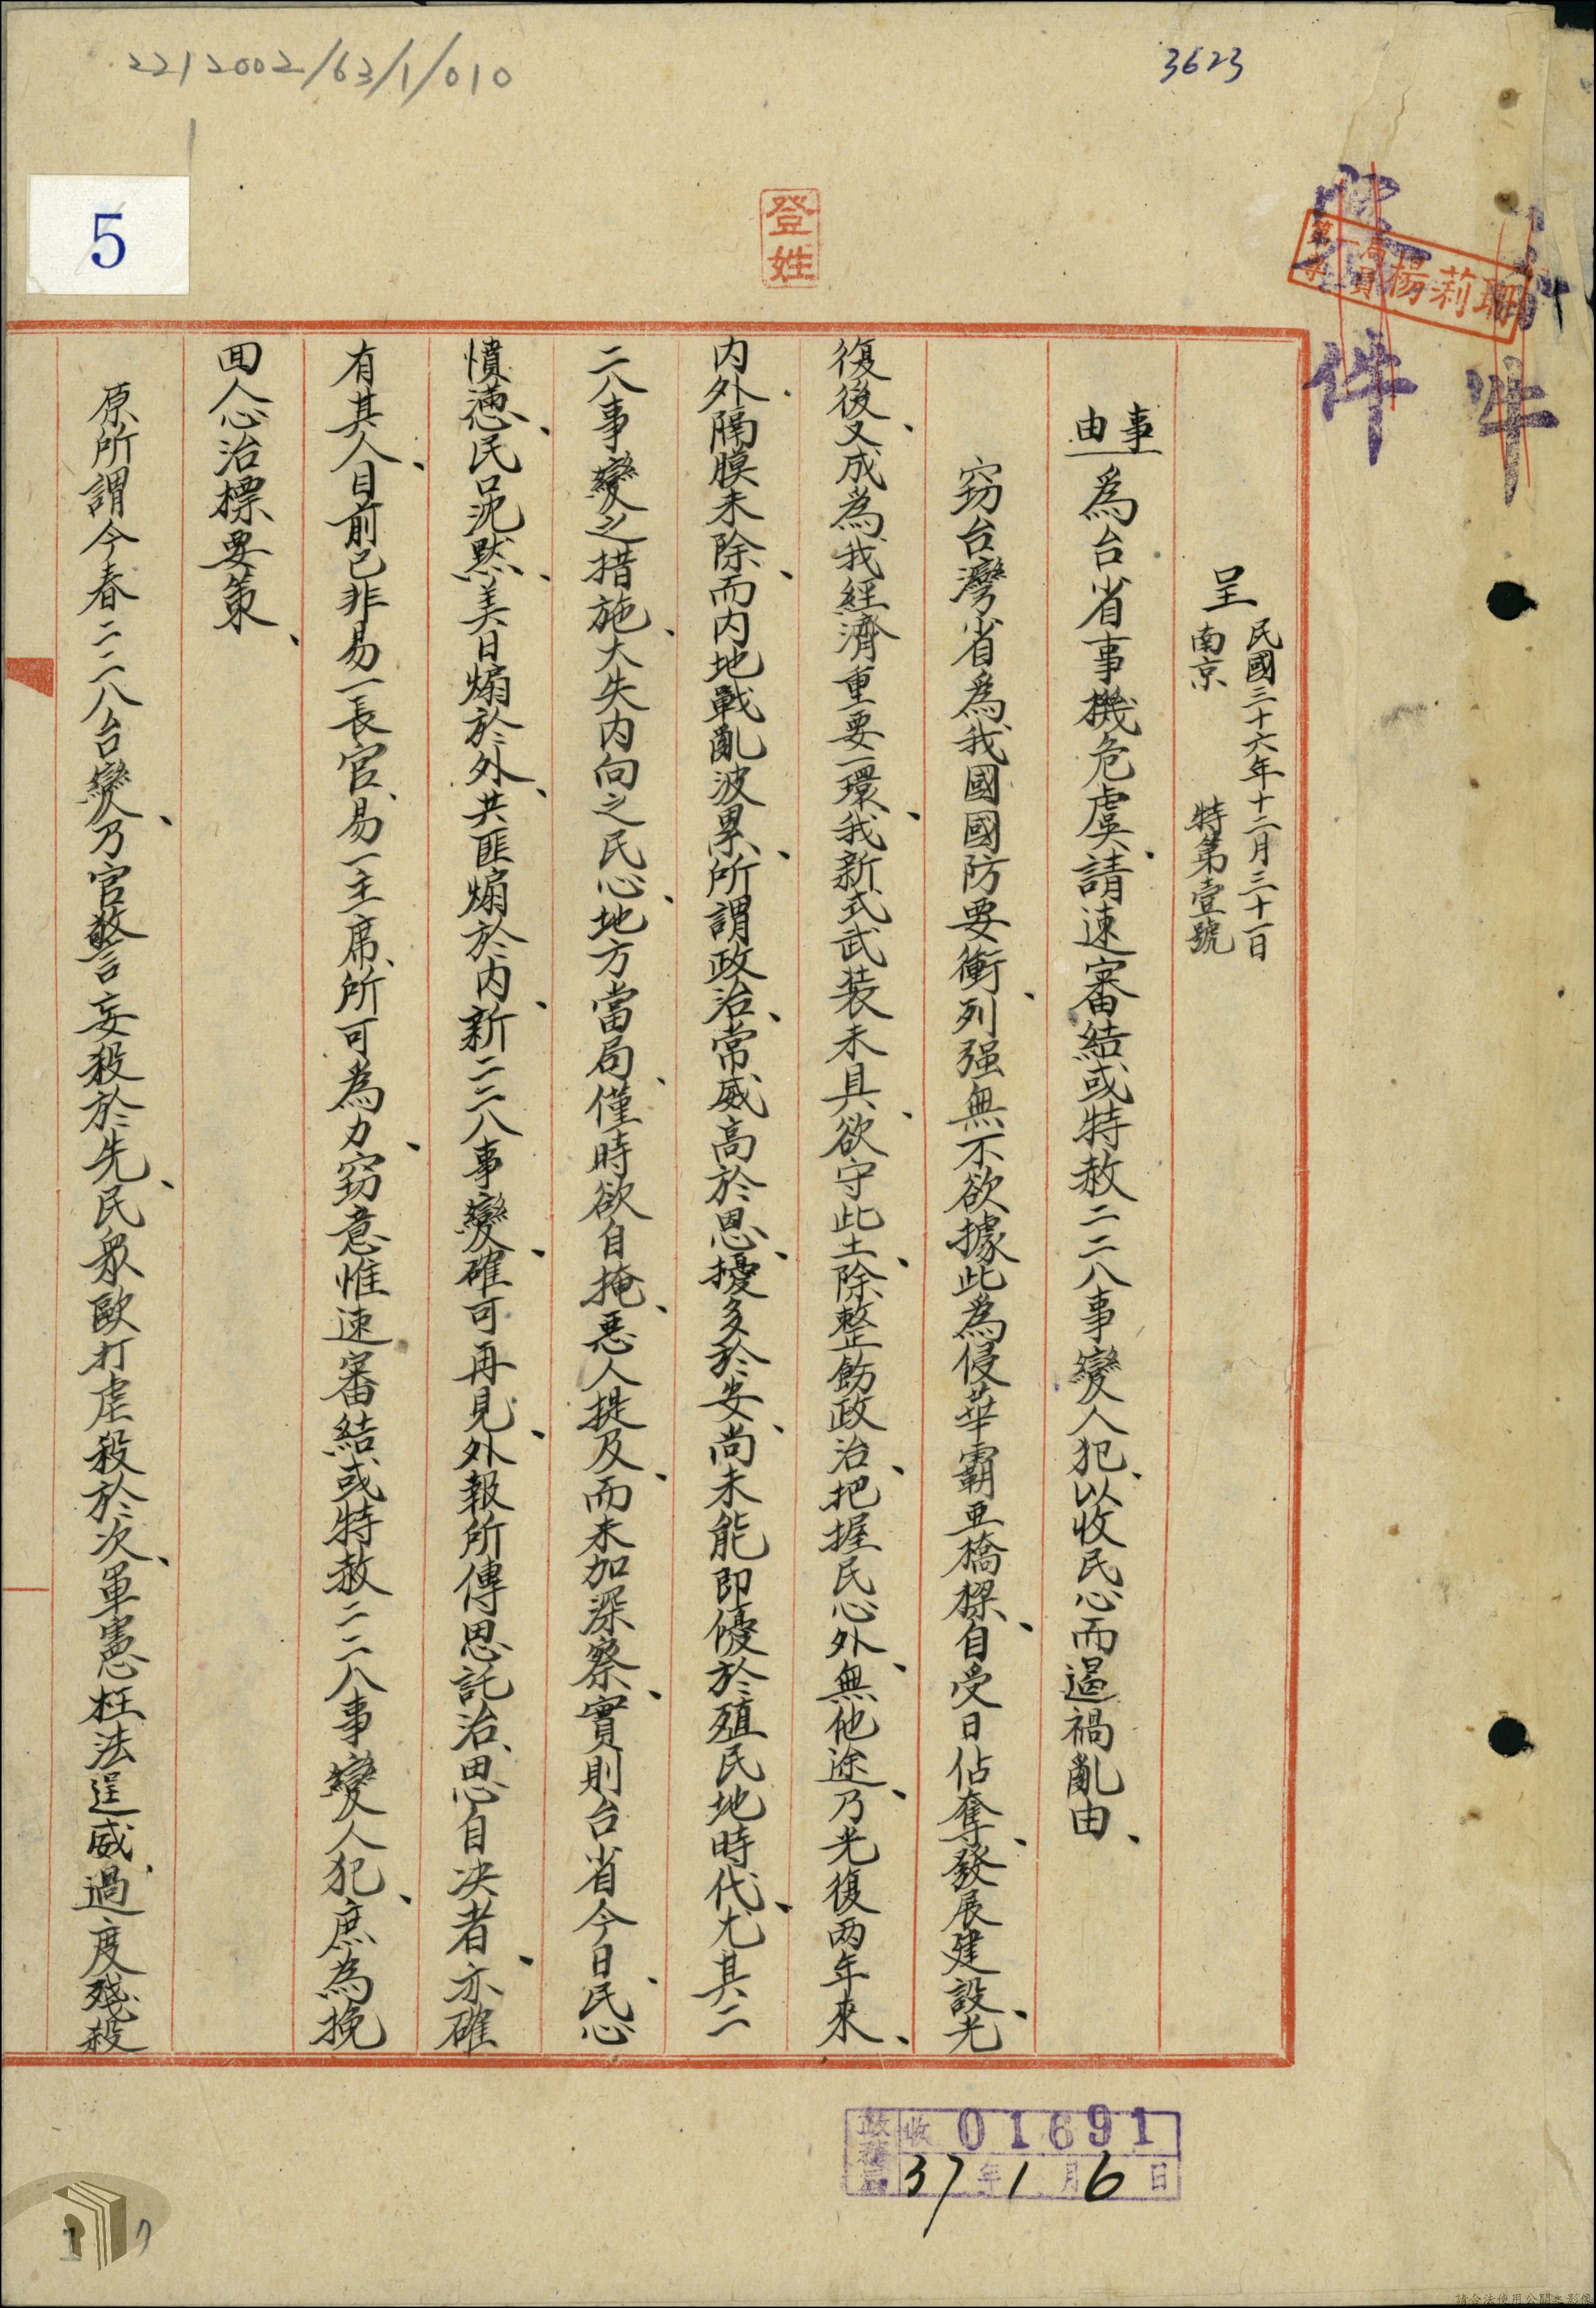 2212002/63/1/010
3623
5
登姓
件
件
第一局
專員
楊莉珊
呈
民國三十六年十二月三十一日
南京
特第壹號
事由
為台省事機危虞、請速審結或特赦二二八事變人犯、以收民心而遏禍亂由、
竊台灣省為我國國防要衝、列强無不欲據此為侵華霸亜橋樑、自受日佔奪、發展建設、光
復後、又成為我經濟重要一環、我新式武装未具、欲守此土、除整飭政治、把握民心外、無他途、乃光復两年來、
内外隔膜未除、而内地戰亂波累、所謂政治、常威高於恩、擾多於安、尚未能即優於殖民地時代、尤其二
二八事變之措施、大失内向之民心、地方當局、僅時欲自掩、惡人提及、而未加深察、實則台省今日、民心
憤懣、民呪默、美日煽於外、共匪煽於内、新二二八事變、確可再見、外報所傳思託治、思自决者、亦確
有其人、目前已非易一長官、易一主席、所可為力、竊意惟速審結或特赦二二八事變人犯、庶為挽
回人心治標要策、
原所謂今春二二八台變、乃官警妄殺於先、民衆毆打虐殺於次、軍憲枉法逞威、過度殘殺
政務局
收 01691
37年1月6日
請合法使用公開之影像